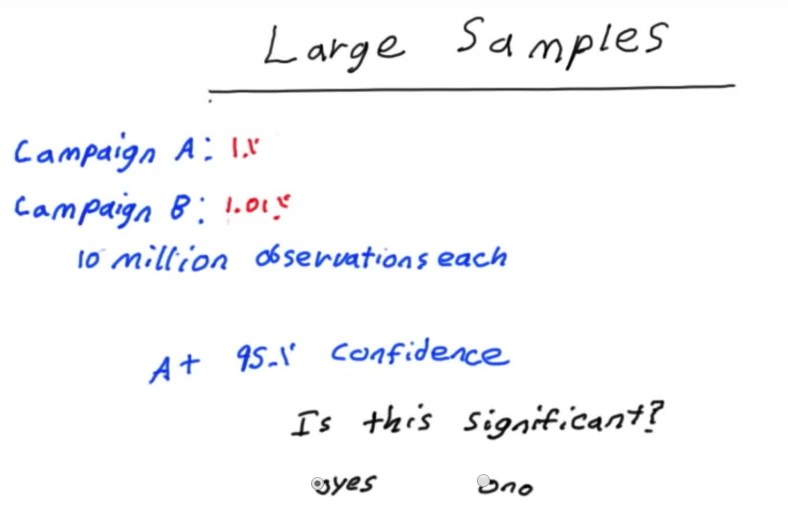 Large Samples
Campaign A: 1%
Campaign B: 1.01%
10 million observations each
At 95% confidence
Is this significant?
yes no